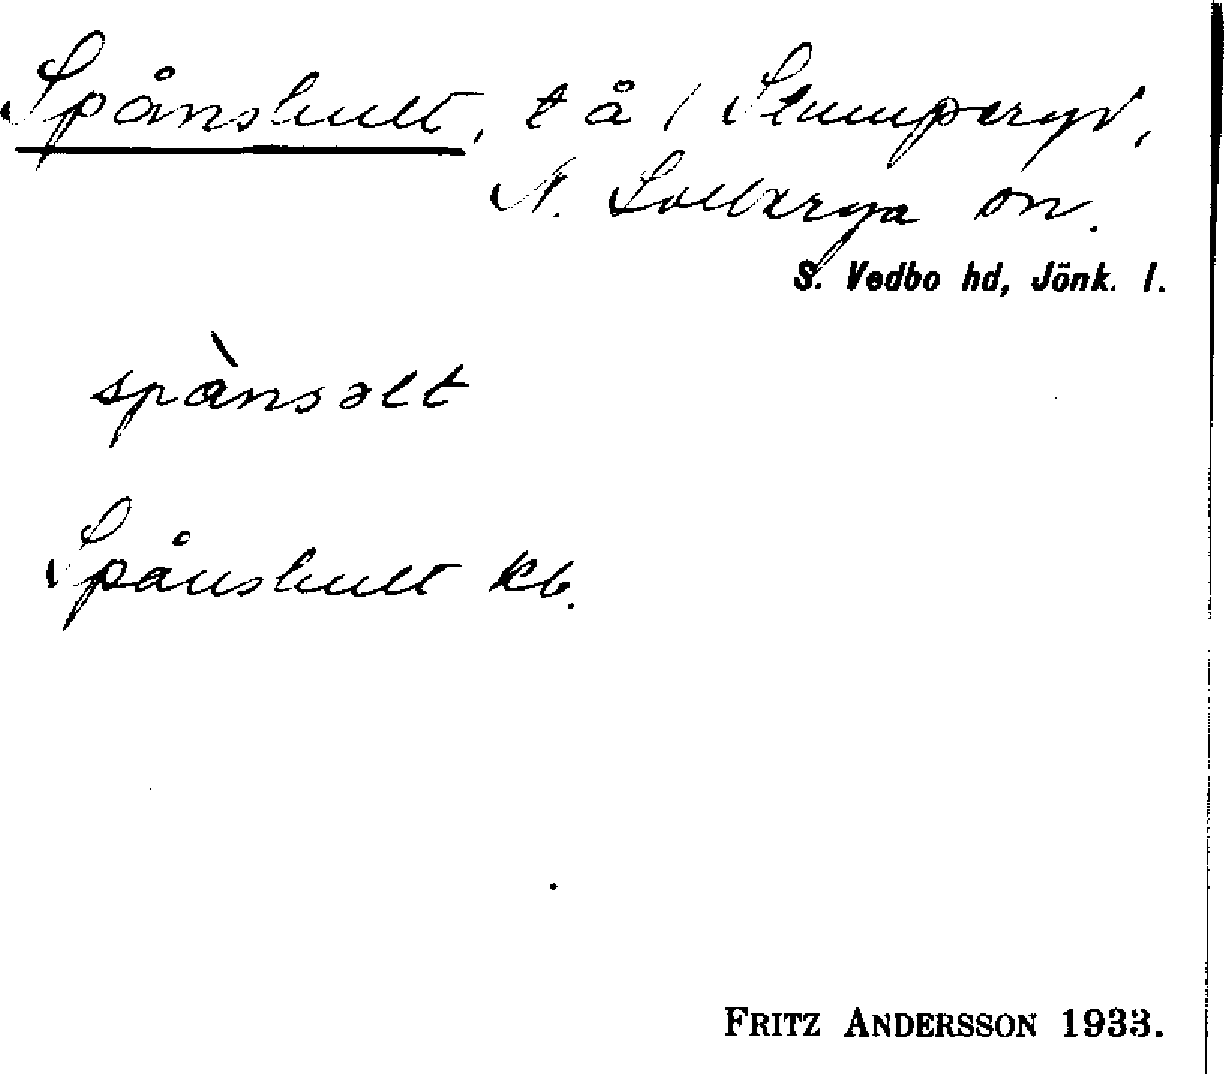 Spånshult, t å / Stumperyd,
N. Solberga sn.
S. Vedbo hd, Jönk. l.
spànsəlt
Spånshult kb.
FRITZ ANDERSSON 1933.